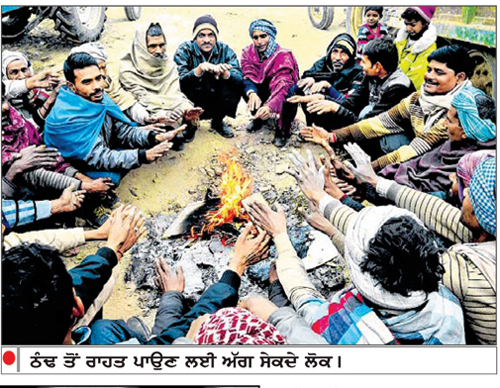 ਠੰਢ ਤੋਂ ਰਾਹਤ ਪਾਉਣ ਲਈ ਅੱਗ ਸੇਕਦੇ ਲੋਕ।